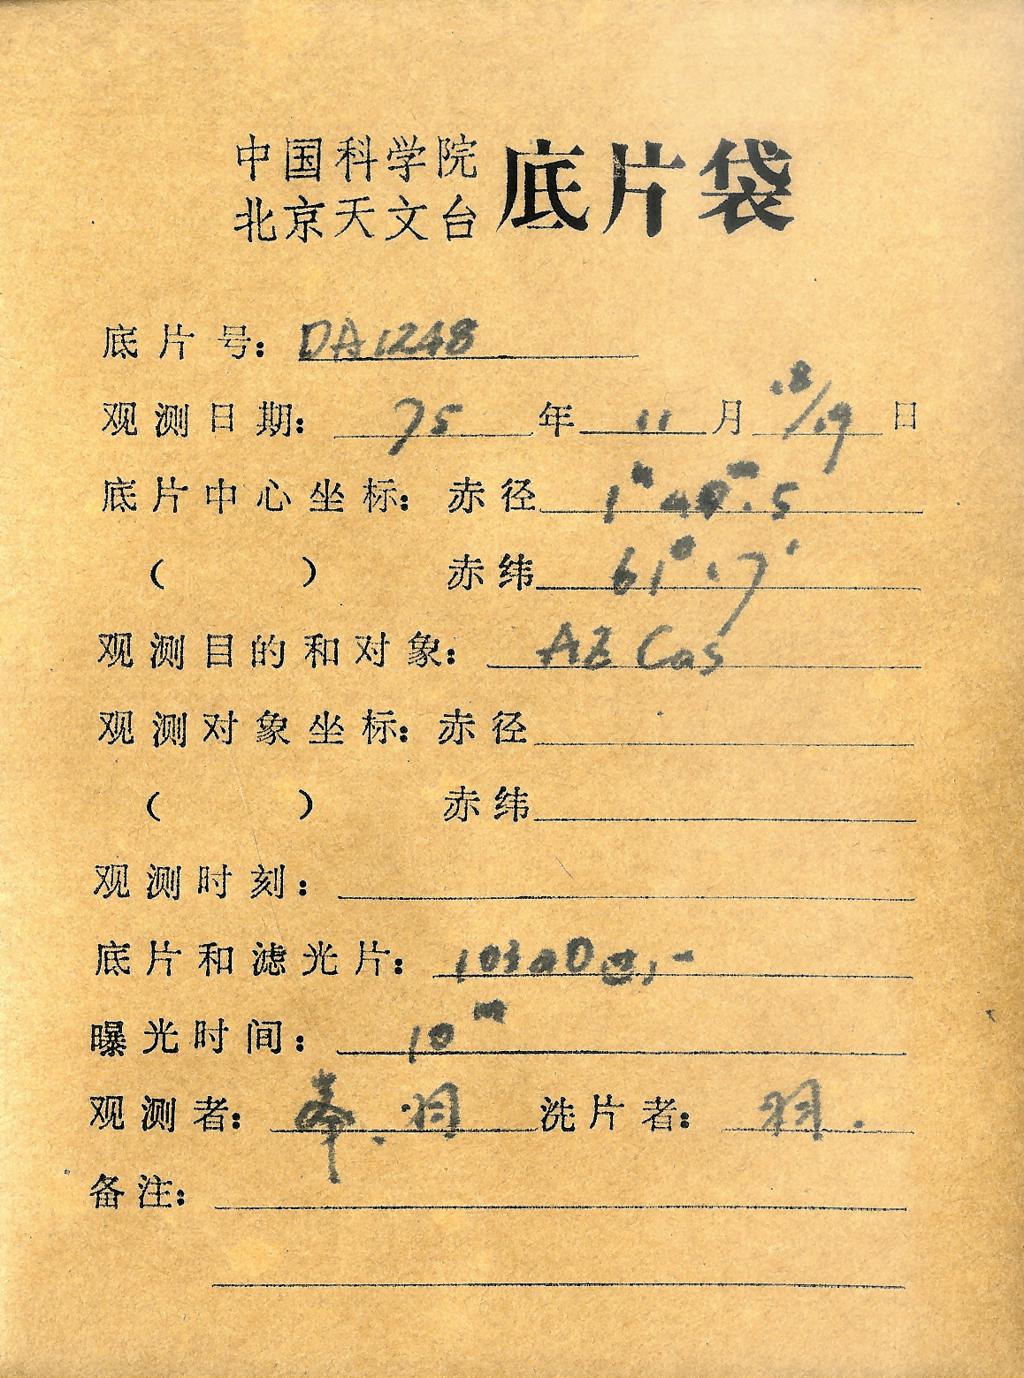 中国科学院
北京天文台 底片袋
底片号: DA1248
观测日期: 75 年 11 月 18/19 日
底片中心坐标: 赤径 1ʰ 40ᵐ.5
( ) 赤纬 61°.7'
观测目的和对象: AZ Cas
观测对象坐标: 赤径
( ) 赤纬
观测时刻:
底片和滤光片: 103aO
曝光时间: 10ᵐ
观测者: 羽 洗片者: 羽.
备注: